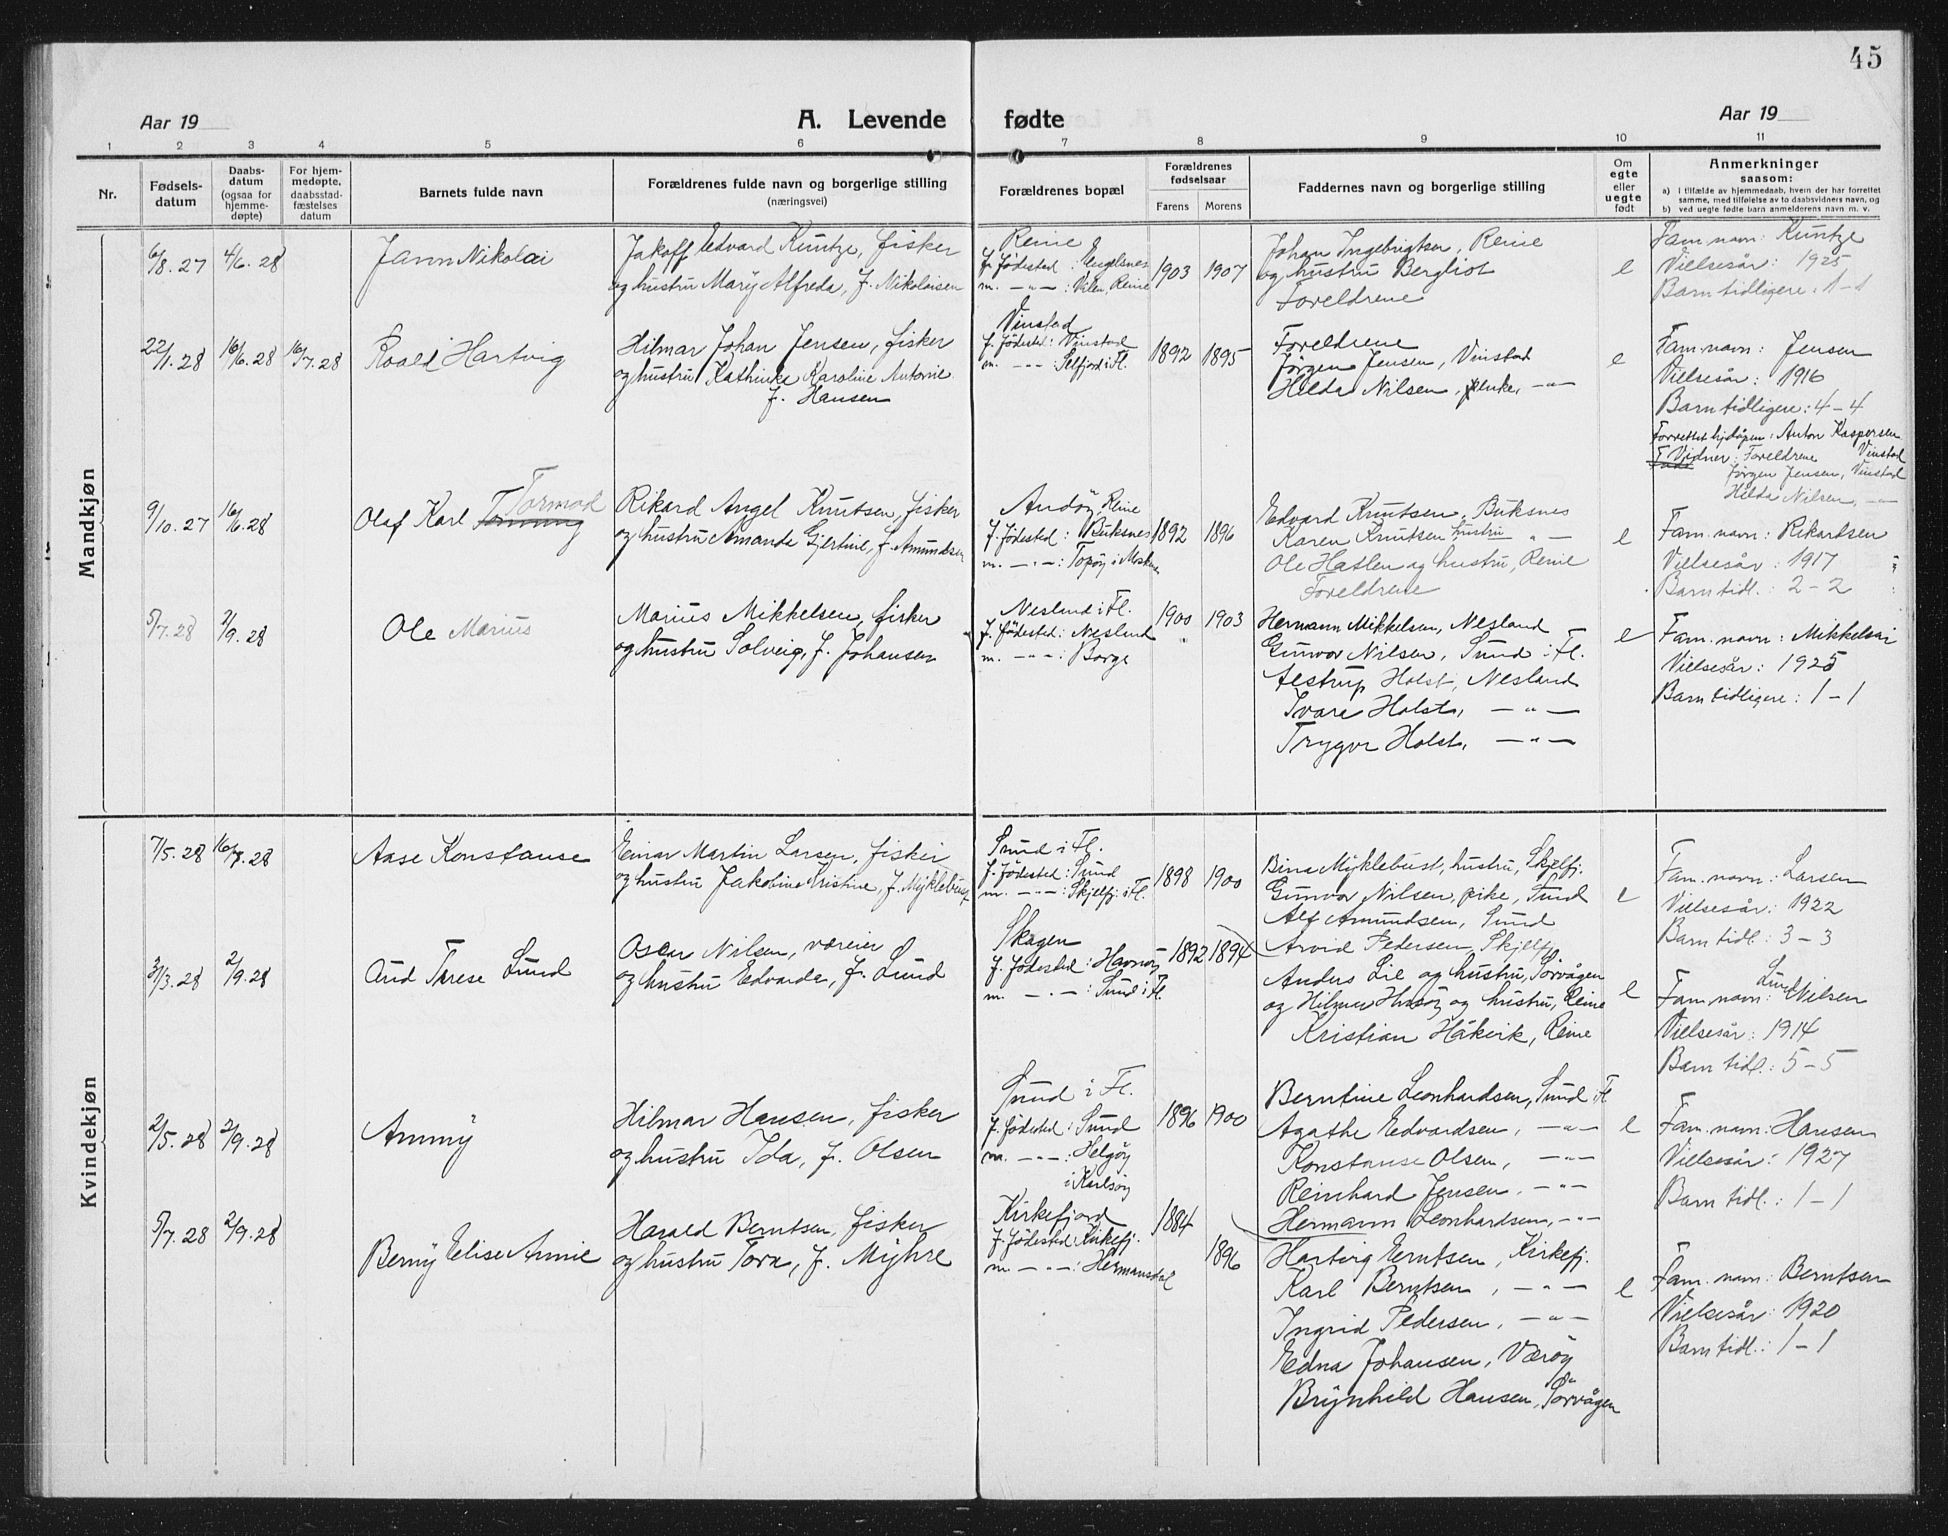 45
Aar 19
A. Levende fødte
Aar 19
1 2 3 4 5 6 7 8 9 10 11
Nr.
Fødsels-
datum
Daabs-
datum
(ogsaa for
hjemme-
døpte)
For hjem-
medøpte,
daabsstad-
fæstelses
datum
Barnets fulde navn
Forældrenes fulde navn og borgerlige stilling
(næringsvei)
Forældrenes bopæl
Forældrenes
fødselsaar
Farens Morens
Faddernes navn og borgerlige stilling
Om
egte
eller
uegte
født
Anmerkninger
saasom:
a) I tilfælde av hjemmedaab, hvem der har forrettet
samme, med tilføielse av to daabsvidners navn, og
b) ved uegte fødte barn anmelderens navn m. v.
Mandkjøn
6/8.27 4/6.28
Jann Nikolai
Jakoff Edvard Kuntze, fisker
og hustru Mary Alfreda, f. Nikolaisen
Reine
f. fødested: Engelsnes
m. -"-: Vilen, Reine
1903 1907
Johan Ingebrigtsen, Reine
og hustru Bergliot
Foreldrene
e
Fam.navn: Kuntze
Vielsesår: 1925
Barn tidligere: 1-1
22/1.28 16/6.28 16/7.28
Roald Hartvig
Hilmar Johan Jensen, fisker
og hustru Kathinke Karoline Antonie
f. Hansen
Vinstad
f. fødested: Vinstad
m. -"-: Selfjord i Fl.
1892 1895
Foreldrene
Jørgen Jensen, Vinstad
Hilda Nilsen, enke, -"-
e
Fam.navn: Jensen
Vielsesår: 1916
Barn tidligere: 4-4
Forrettet hjdåpen: Anton Kaspersen
Vinstad
Vidner: Foreldrene
Jørgen Jensen, Vinstad
Hilda Nilsen, -"-
9/10.27 16/6.28
Olaf Karl Tormod
Rikard Angel Knutsen, fisker
og hustru Amanda Gjertine, f. Amundsen
Andöy Reine
f. fødested: Buksnes
m. -"-: Topöy i Mosken
1892 1896
Edvard Knutsen, Buksnes
Karen Knutsen hustru -"-
Ole Hatlen og hustru, Reine
Foreldrene
e
Fam.navn: Rikartsen
Vielsesår: 1917
Barn tidl.: 2-2
5/7.28 2/9.28
Ole Marius
Marius Mikkelsen, fisker
og hustru Solveig, f. Johansen
Nesland i Fl.
f. fødested: Nesland
m. -"-: Borge
1900 1903
Hermann Mikkelsen, Nesland
Gunvor Nilsen, Sund i Fl.
Aestrup Holst, Nesland
Ivara Holst, -"-
Trygve Holst, -"-
e
Fam.navn: Mikkelsen
Vielsesår: 1925
Barn tidligere: 1-1
Kvindekjøn
7/5.28 16/7.28
Aase Konstanse
Einar Martin Larsen, fisker
og hustru Jakobine Kristine, f. Myklebust
Sund i Fl.
f. fødested: Sund
m. -"-: Skjelfj. i Fl.
1898 1900
Bina Myklebust, hustru, Skjelfj.
Gunvor Nilsen, pike, Sund
Alf Amundsen, Sund
Arvid Pedersen, Skjelfj.
e
Fam.navn: Larsen
Vielsesår: 1922
Barn tidl.: 3-3
31/3.28 2/9.28
Aud Terese Lund
Oscar Nilsen, væreier
og hustru Edvarda, f. Lund
Skagen
f. fødested: Havnöy
m. -"-: Sund i Fl.
1892 1894
Anders Lie og hustru, Sørvågen
og Hilmar og hustru, Reine
Kristian Håkvik, Reine
e
Fam.navn: Lund Nilsen
Vielsesår: 1914
Barn tidl.: 5-5
2/5.28 2/9.28
Ammy
Hilmar Hansen, fisker
og hustru Ida, f. Olsen
Sund i Fl.
f. fødested: Sund
m. -"-: Helgöy
i Karlsöy
1896 1900
Berntine Leonhardsen, Sund i Fl
Agathe Edvardsen, -"-
Konstanse Olsen, -"-
Reinhard Jensen, -"-
Hermann Leonhardsen, -"-
e
Fam.navn: Hansen
Vielsesår: 1927
Barn tidl.: 1-1
5/7.28 2/9.28
Berny Elise Annie
Harald Berntsen, fisker
og hustru Tora, f. Myhre
Kirkefjord
f. fødested: Kirkefj.
m. -"-: Hermansdal
1884 1896
Hartvig Berntsen, Kirkefj.
Karl Berntsen, -"-
Ingrid Pedersen, -"-
Edna Johansen, Værøy
Brynhild Hansen, Sørvågen
e
Fam.navn: Berntsen
Vielsesår: 1920
Barn tidl.: 1-1